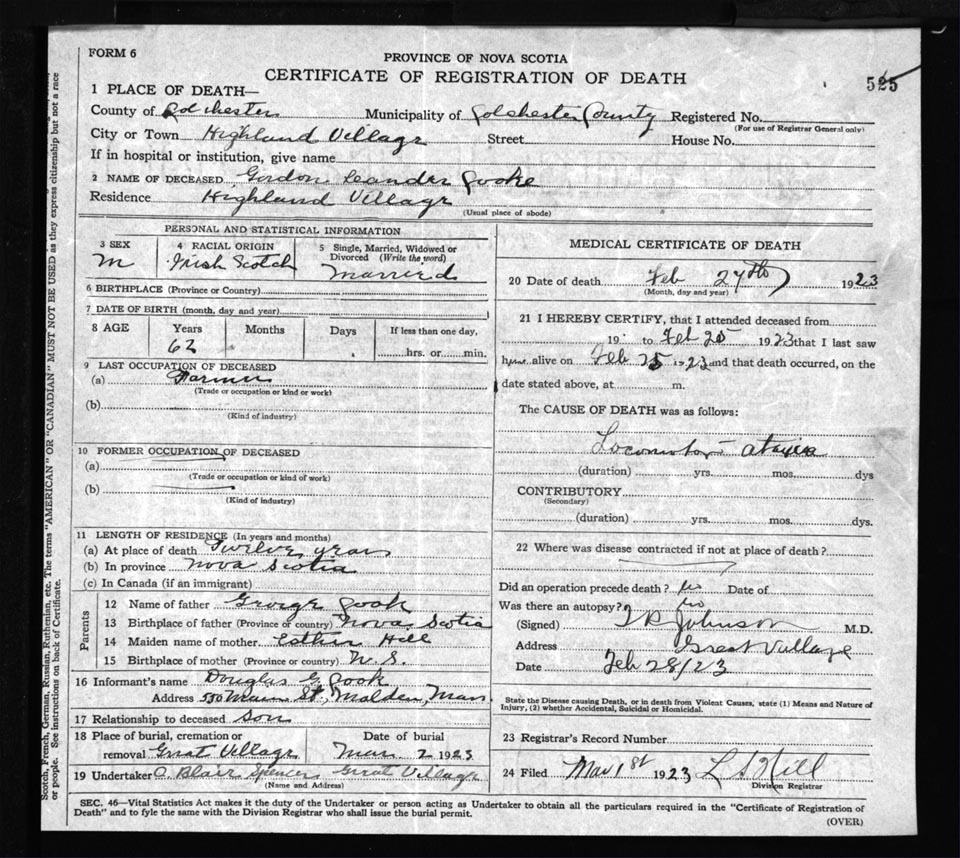 FORM 6
PROVINCE OF NOVA SCOTIA
CERTIFICATE OF REGISTRATION OF DEATH
525
1 PLACE OF DEATH—
County of Colchester Municipality of Colchester County Registered No.
(For use of Registrar General only)
City or Town Highland Village Street House No.
If in hospital or institution, give name
2 NAME OF DECEASED Gordon Leander Cooke
Residence Highland Village
(Usual place of abode)
PERSONAL AND STATISTICAL INFORMATION
3 SEX 4 RACIAL ORIGIN 5 Single, Married, Widowed or Divorced (Write the word)
M Irish Scotch Married
6 BIRTHPLACE (Province or Country)
7 DATE OF BIRTH (month, day and year)
8 AGE Years Months Days If less than one day,
62 hrs. or min.
9 LAST OCCUPATION OF DECEASED
(a) Farmer
(Trade or occupation or kind or work)
(b)
(Kind of industry)
10 FORMER OCCUPATION OF DECEASED
(a)
(Trade or occupation or kind of work)
(b)
(Kind of industry)
11 LENGTH OF RESIDENCE (In years and months)
(a) At place of death Twelve years
(b) In province Nova Scotia
(c) In Canada (if an immigrant)
Parents
12 Name of father George Cook
13 Birthplace of father (Province or country) Nova Scotia
14 Maiden name of mother Hill
15 Birthplace of mother (Province or country) N.S.
16 Informant's name Douglas G. Cook
Address 550 Main St., Malden, Mass
17 Relationship to deceased Son
18 Place of burial, cremation or Date of burial
removal Great Village Mar 2 1923
19 Undertaker O. Blair Spencer Great Village
(Name and Address)
MEDICAL CERTIFICATE OF DEATH
20 Date of death Feb 27th 1923
(Month, day and year)
21 I HEREBY CERTIFY, that I attended deceased from
19 to Feb 25 1923 that I last saw
him alive on Feb 25 1923 and that death occurred, on the
date stated above, at m.
The CAUSE OF DEATH was as follows:
Locomotor ataxia
(duration) yrs. mos. dys
CONTRIBUTORY
(Secondary)
(duration) yrs. mos. dys.
22 Where was disease contracted if not at place of death?
Did an operation precede death? No Date of
Was there an autopsy? No
(Signed) T R Johnson M.D.
Address Great Village
Date Feb 28/23
State the Disease causing Death, or in death from Violent Causes, state (1) Means and Nature of
Injury, (2) whether Accidental, Suicidal or Homicidal.
23 Registrar's Record Number
24 Filed Mar 1st 1923 L S Hill
Division Registrar
SEC. 46—Vital Statistics Act makes it the duty of the Undertaker or person acting as Undertaker to obtain all the particulars required in the "Certificate of Registration of
Death" and to fyle the same with the Division Registrar who shall issue the burial permit.
(OVER)
Scotch, French, German, Russian, Ruthenian, etc. The terms "AMERICAN" OR "CANADIAN" MUST NOT BE USED as they express citizenship but not a race
or people. See instructions on back of Certificate.